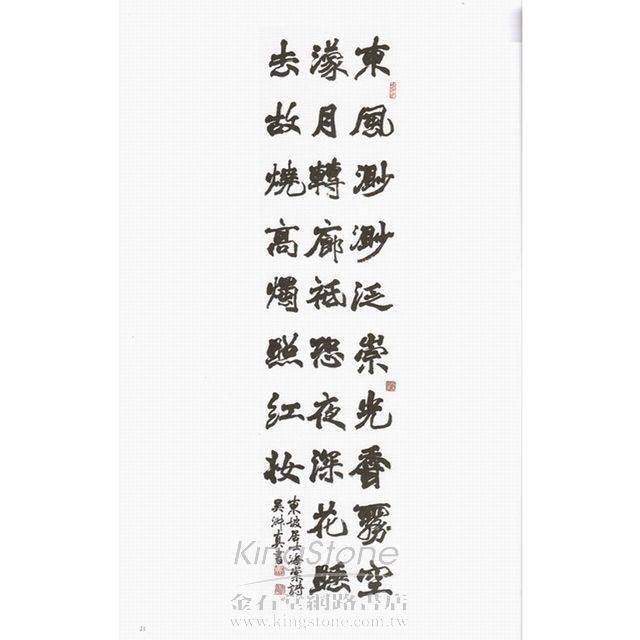 東風渺渺泛崇光香霧空
濛月轉廊祗恐夜深花睡
去故燒高燭照紅妝
東坡居士海棠詩
吳
真書
KingStone
金石堂網路書店
www.kingstone.com.tw
21